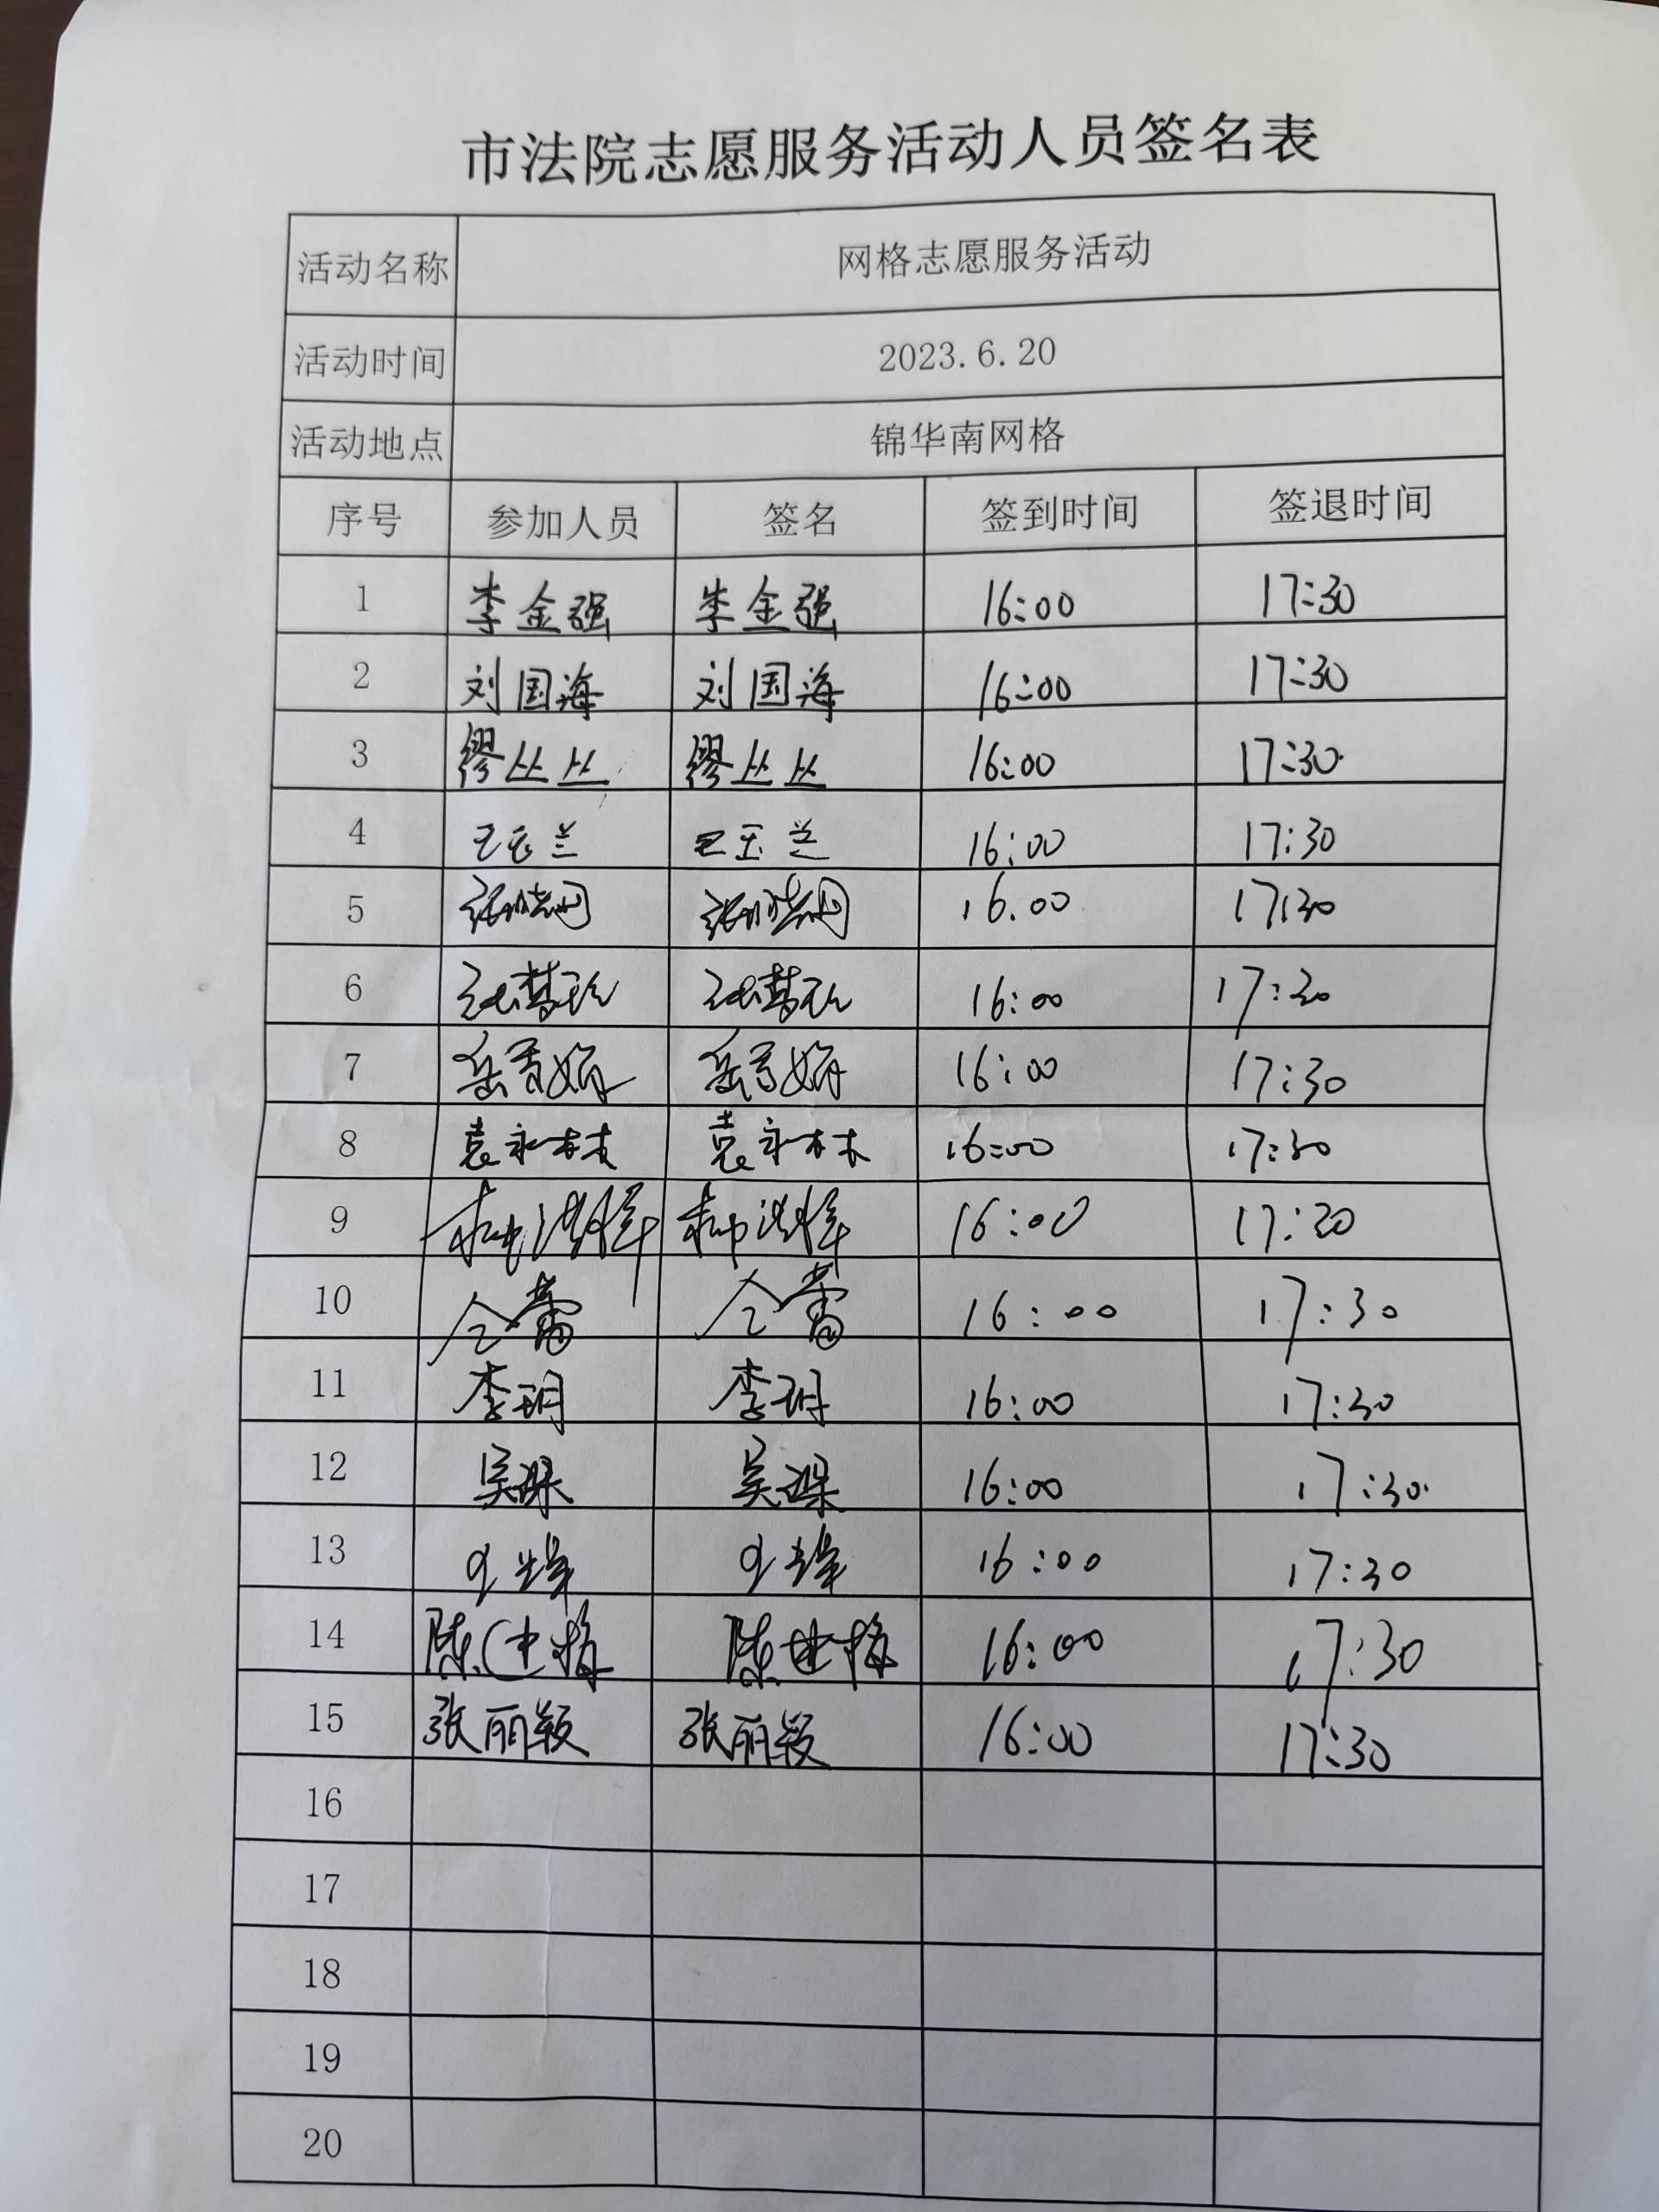 市法院志愿服务活动人员签名表
活动名称 网格志愿服务活动
活动时间 2023.6.20
活动地点 锦华南网格
序号 参加人员 签名 签到时间 签退时间
1 李金强 李金强 16:00 17:30
2 刘国海 刘国海 16:00 17:30
3 缪丛丛 缪丛丛 16:00 17:30
4 王玉兰 王玉兰 16:00 17:30
5 16:00 17:30
6 16:00 17:30
7 16:00 17:30
8 袁永林 袁永林 16:00 17:30
9 16:00
10 仝蕾 仝蕾 16:00 17:30
11 李玥 李玥 16:00 17:30
12 16:00 17:30
13 16:00 17:30
14 16:00 17:30
15 张丽颖 张丽颖 16:00 17:30
16
17
18
19
20